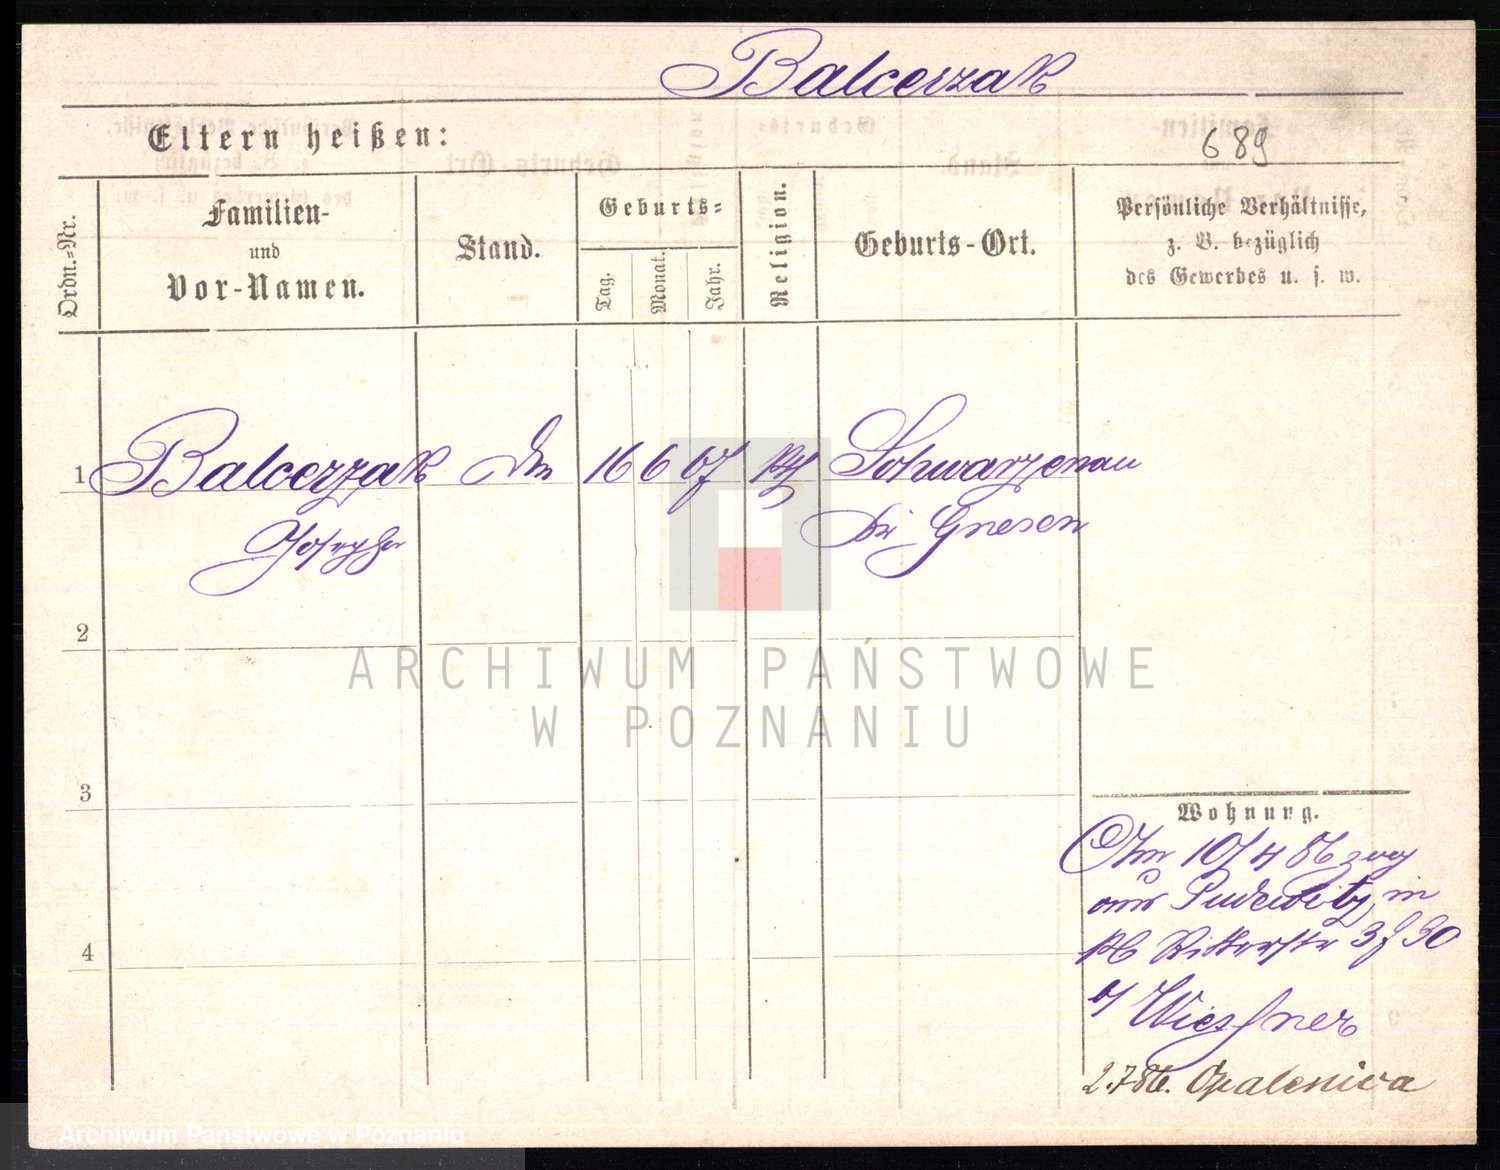 Balcerzak
Eltern heißen:
689
Ordn.-Nr.
Familien-
und
Vor-Namen.
Stand.
Geburts-
Tag.
Monat.
Jahr.
Religion.
Geburts-Ort.
Persönliche Verhältnisse,
z. B. bezüglich
des Gewerbes u. s. w.
1 Balcerzak 16 6 67 Kth Schwarzenau
Josepha bei Gnesen
2
ARCHIWUM PAŃSTWOWE
W POZNANIU
3
Wohnung.
10/4 86 zug
aus Pudewitz in
Ritterstr
4
Wiessner
2.7 86. Opalenica
Archiwum Państwowe w Poznaniu